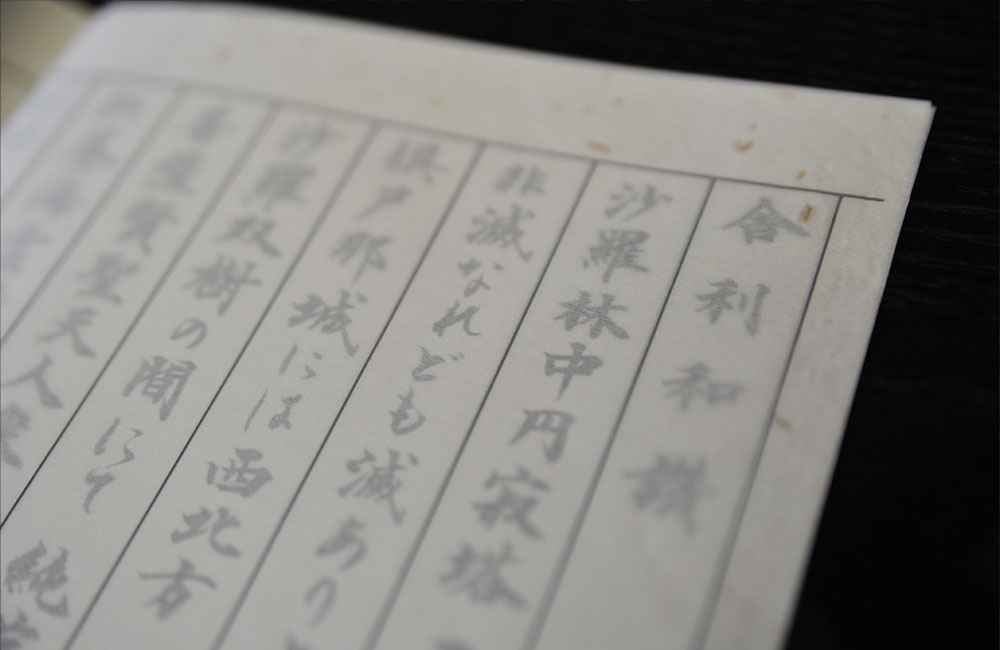 舎利和讃
沙羅林中円寂塔
非滅なれども滅あり
倶尸那城には西北方
沙羅双樹の間にて
菩薩賢聖天人衆 純